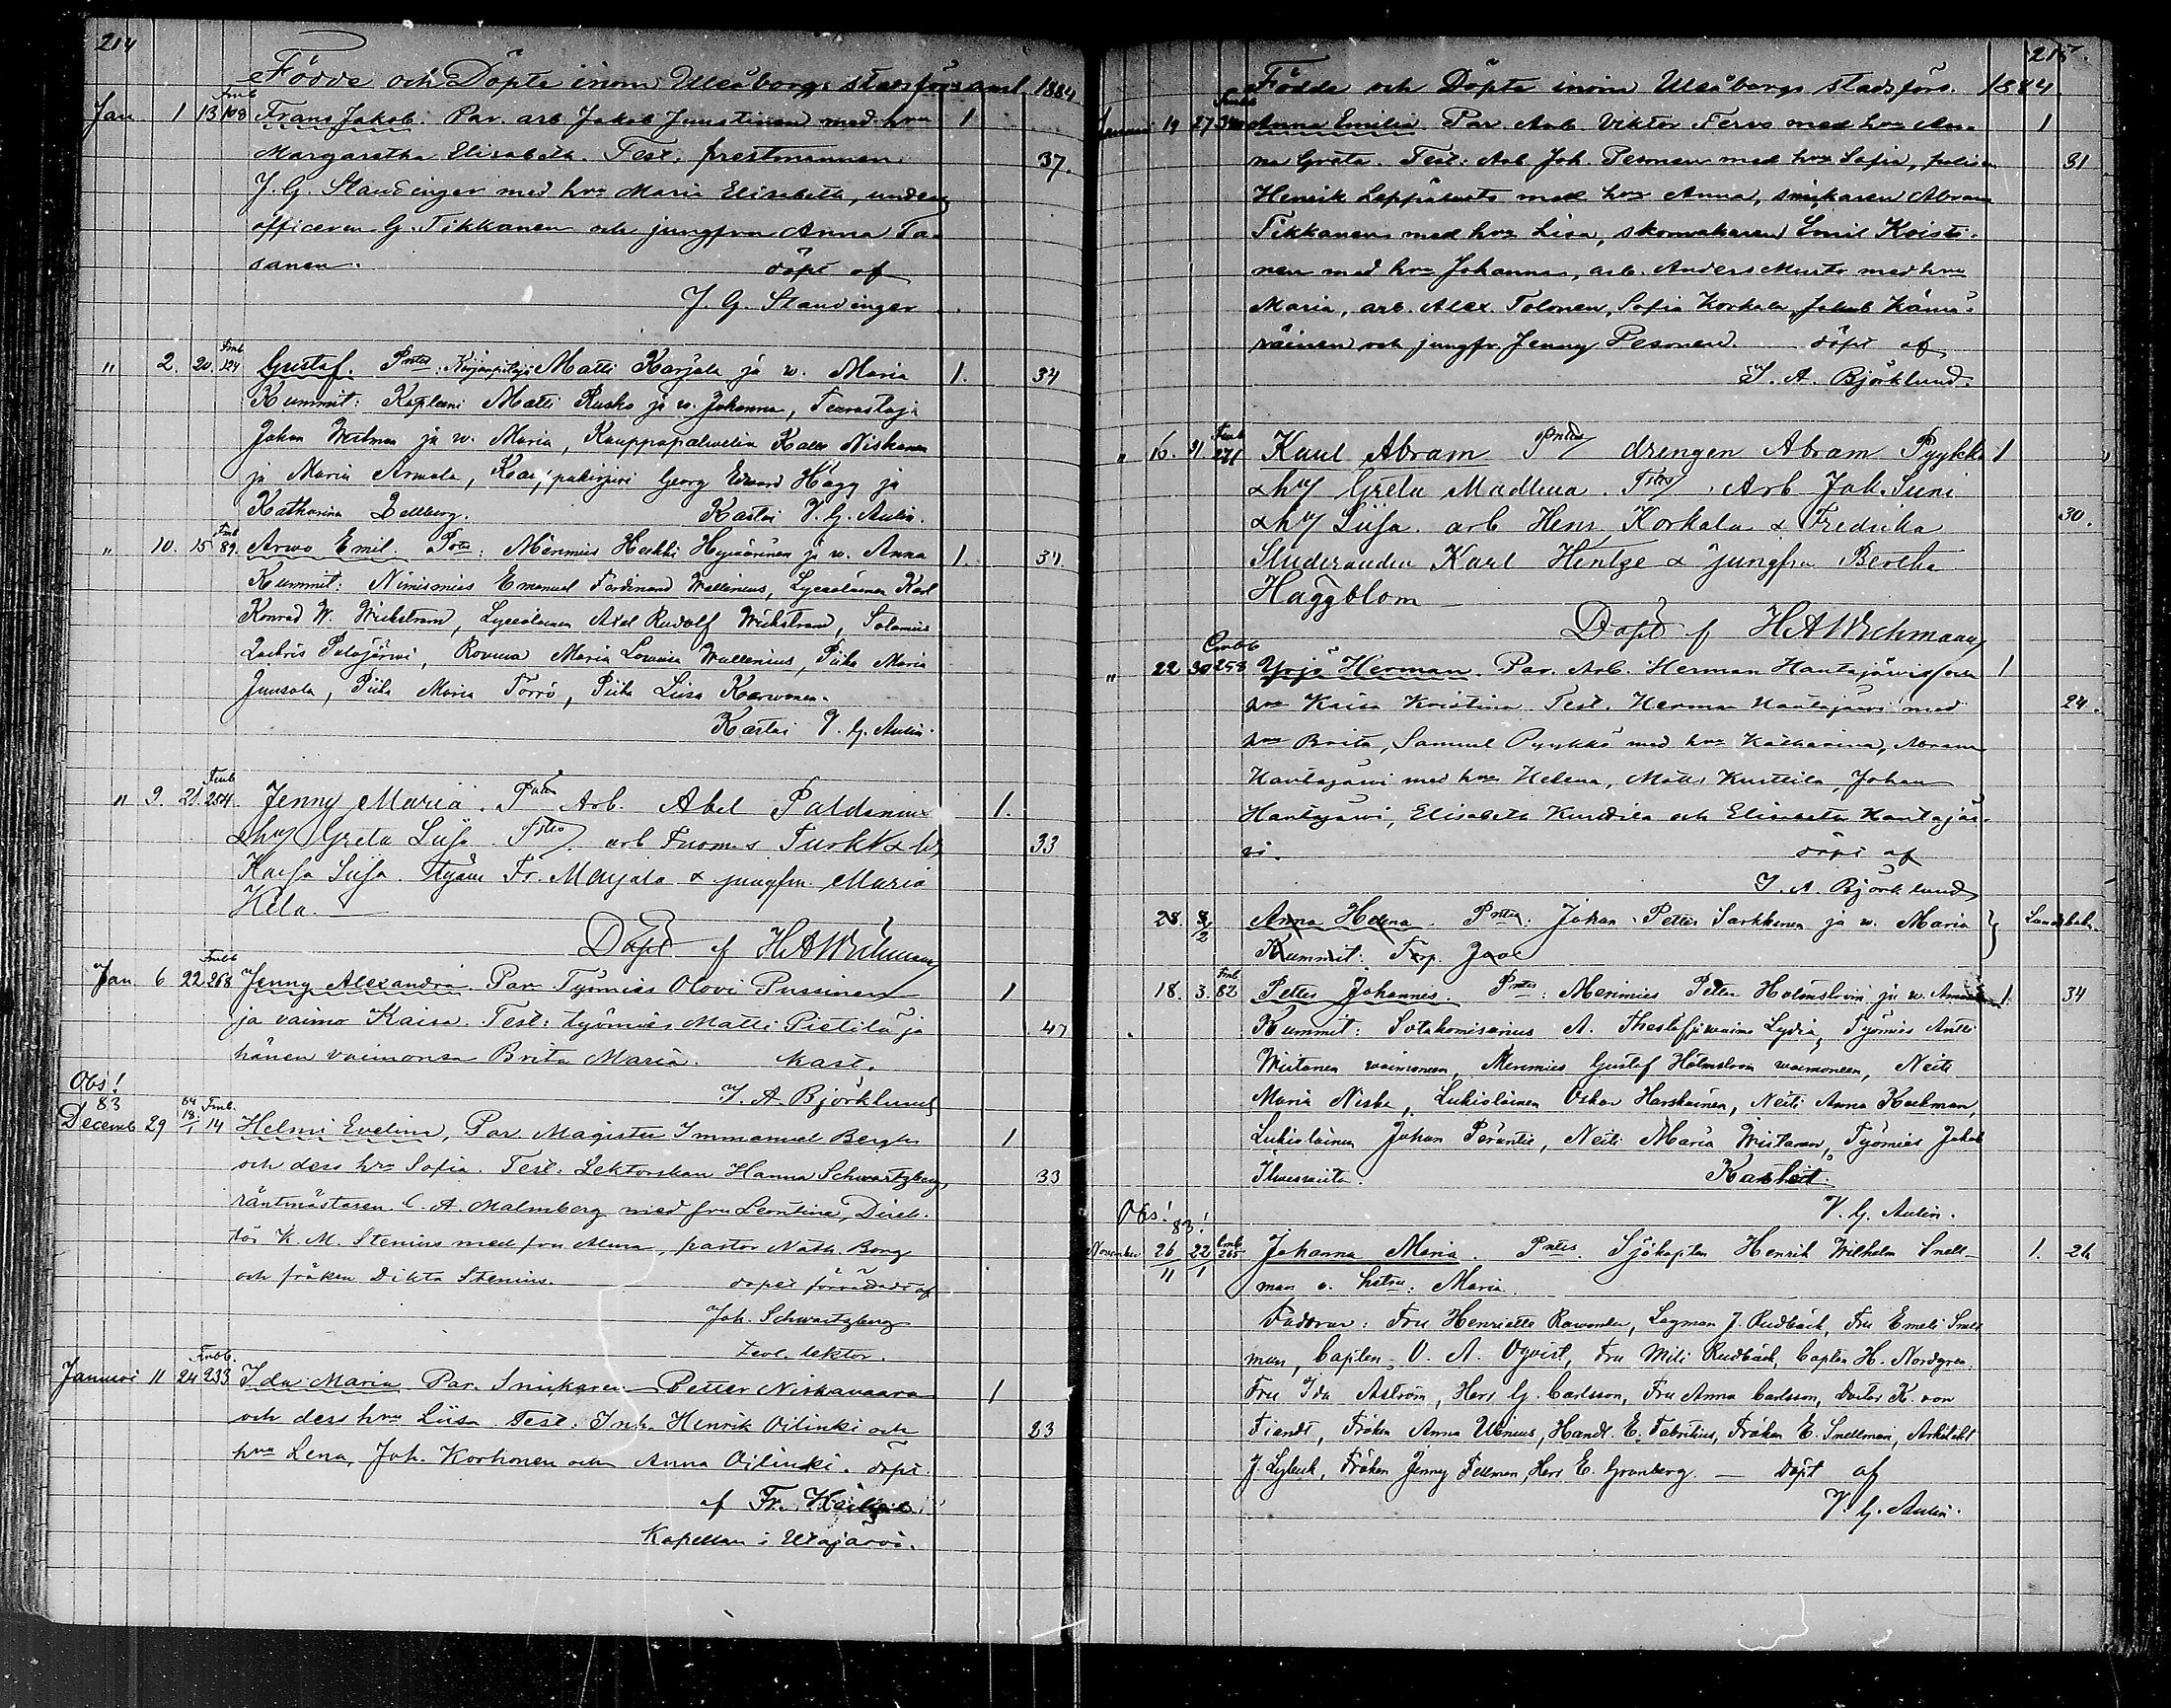 214
Födde och Döpte inom Uleåborgs stadsförsaml. 1884
Jan 1 13 Fmb 108 Frans Jakob. Par. arb Jakob Juustinen med hru 1
Margaretha Elisabeth. Test: prestmannen 37.
J. G. Standinger med hru Maria Elisabeth, under
officeren G. Tikkanen och jungfrun Anna Ta-
sanen. döpt af
J. G. Standinger
" 2. 20. Fmb 124 Gustaf. Prntes: Matti Karjala ja w. Maria 1. 34
Kummit: Kapteeni Matti Rusko ja w. Johanna, Teurastaja
Johan Westman ja w. Maria, Kauppapalwelia Kalle Niskanen
ja Maria Armala, Georg Edward Hägg ja
Katharina Dellberg. Kastoi V. G. Aulin.
" 10. 15 Fmb 89. Arwo Emil. Prntes: Merimies Heikki Hywärinen ja w. Anna 1. 34.
Kummit: Nimismies Emanuel Ferdinand Wallenius, Lyceolainen Karl
Konrad W. Wickstrom, Lyceolainen Axel Rudolf Wickstrom,
Zachris Palojärwi, Rouwa Maria Lowisa Wallenius, Piika Maria
Juusola, Piika Maria Törrö, Piika Liisa Karwonen.
Kastoi V. G. Aulin.
" 9. 21. Fmb 254. Jenny Maria. Arb. Abel Paldanius 1.
& hu Greta Liisa. arb Tuomas Turkk & h 33
Kaisa Liisa. Fr. Marjala & jungfru Maria
Kela.
Döpt af HAWichmann
Jan 6 22 Fmbb 268 Jenny Alexandra Par. Työmies Olovi Pussinen 1
ja vaimo Kaisa. Test: työmies Matti Pietilä ja 47
hänen vaimonsa Brita Maria. Kast.
J. A. Björklund
Obs!
83
Decemb 29 84 18/1 Fmb. 14 Helmi Evelina, Par. Magister Immanuel Bergh 1
och dess hru Sofia. Test: Lektorskan Hanna Schwartzberg, 33
räntmästaren C. A. Malmberg med fru Leontine, Direk-
tör K. M. Stenius med fru Alma, pastor Nath. Borg
och fröken Dikta Stenius. dopet förrättadt af
Joh. Schwartzberg
teol. lektor.
Januari 11 24 Fmbb. 233 Ida Maria. Par. Snickaren Petter Niskavaara 1
och dess hru Liisa. Test. Inh. Henrik Oilinki och 23
hru Lena, Joh. Korhonen och Anna Oilinki. döpt
af Fr.
Kapellan i Utajärvi.
215.
Födde och Döpte inom Uleåborgs stadsförs. 1884.
Januari 19 27 Anna Emilia. Par. Arb. Viktor Tervo med hru An- 1
na Greta. Test: Arb Joh. Pesonen med hru Sofia, polisen 31
Henrik Leppäluoto med hru Anna, snickaren Abram
Tikkanen med hru Lisa, skomakaren Emil Koisti-
nen med hru Johanna, arb. Anders Musto med hru
Maria, arb. Alex. Tolonen, Sofia Korkala, Jakob Kämä-
räinen och jungfr. Jenny Pesonen. döpt af
J. A. Björklund.
" 16. 31 Fmb 271 Karl Abram drengen Abram Pyykkö 1
& hu Greta Madlena. Arb Joh. Suni
& hu Liisa. arb Henr. Korkala & Fredrika 30.
Studeranden Karl Hentze & jungfru Bertha
Häggblom
Döpt af HAWichmann
" 22 30 258 Yrjö Herman. Par. Arb. Herman Hautajärvi och 1
hru Kaisa Kristina. Test. Herman Hautajärvi med 24.
hru Brita, Samuel Pyykkö med hru Katharina, Abram
Hautajärvi med hru Helena, Matts Kurttila, Johan
Hautajärvi, Elisabeth Kurttila och Elisabeth Hautajär-
vi. döpt af
J. A. Björklund
28. Anna Helena. Prntes: Johan Petter Sarkkinen ja w. Maria
Kummit: Trp. Joac
18. 3. Fmb. 82 Petter Johannes. Prntes: Merimies Petter Holmström ja w. 1. 34
Kummit: A. Theslöf ja waimo Lydia, Työmies Antti
Wiitanen waimoneen, Merimies Gustaf Holmström waimoneen, Neiti
Maria Niska, Lukiolainen Oskar Harskainen, Neiti Anna Kockman,
Lukiolainen Johan Peranto, Neiti Maria Wiitanen, Työmies Jakob
Kastoi
V. G. Aulin.
Obs!
83!
November 26/11 22/1 265 Johanna Maria. Prntes. Sjökapten Henrik Wilhelm Snell- 1. 26
man o. hstru: Maria.
Faddrar: Fru Henriette Rawander, Lagman J. Rudbäck, Fru Emeli Snell
man, Capten O. A. Öqvist, Fru Mili Rudbäck, Capten H. Nordgren.
Fru Ida Aström, Herr G. Carlsson, Fru Anna Carlsson, Doctor K. von
Fiandt, Fröken Anna Ulenius, Handl. E. Fabritius, Fröken E. Snellman, Arkitekt
J. Lybeck, Fröken Jenny Fellman, Herr E. Granberg. — Döpt af
V. G. Aulin.